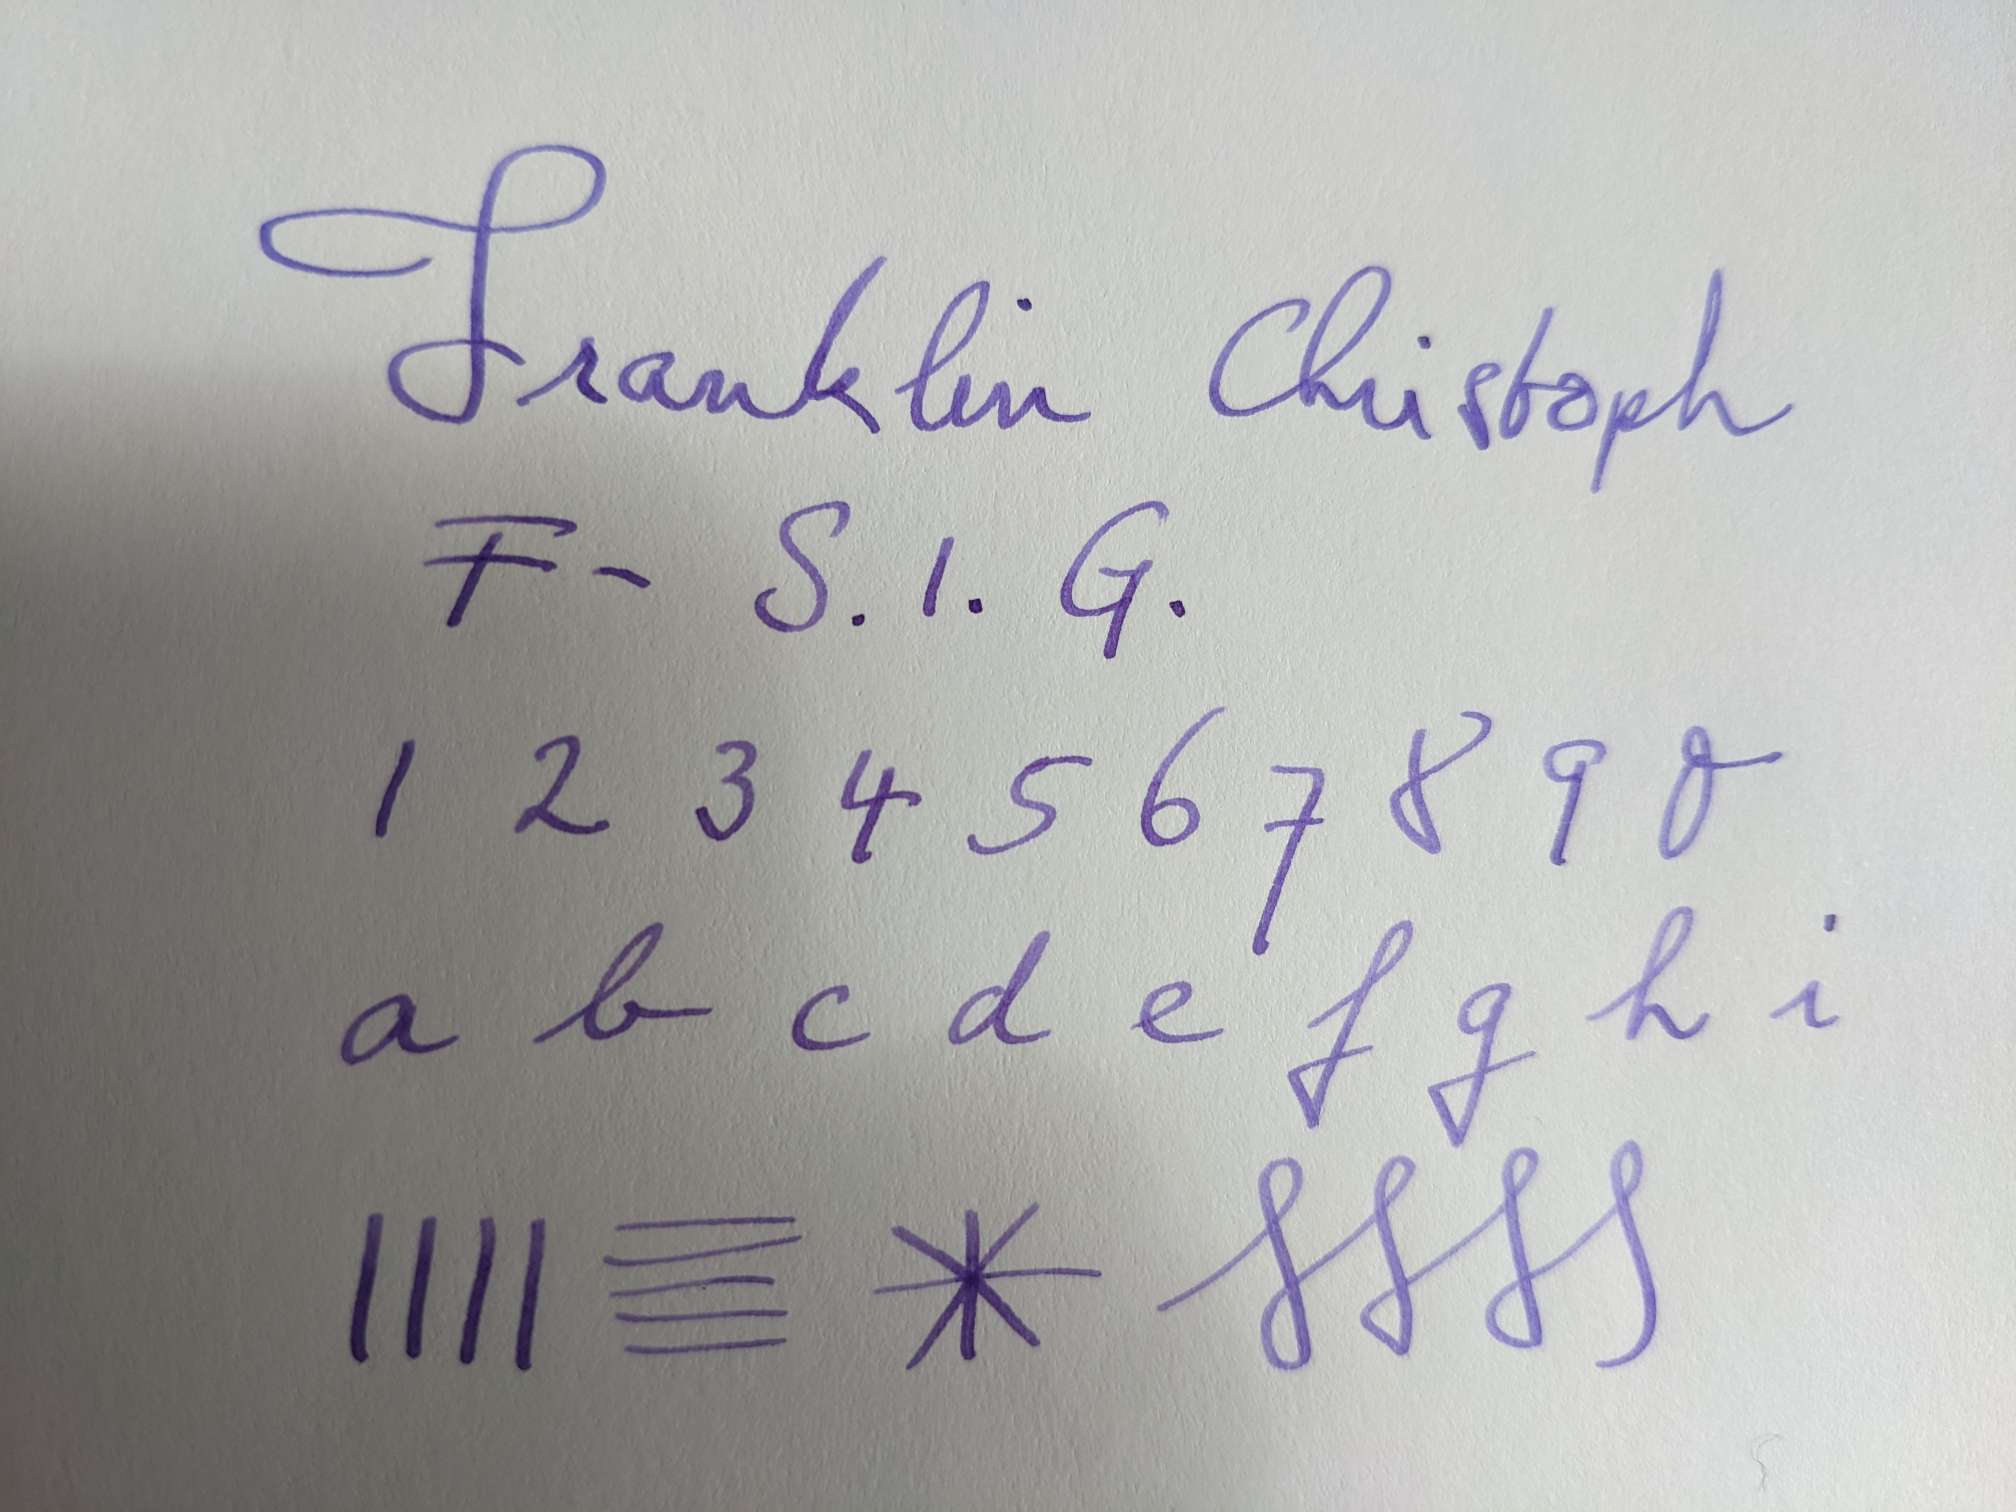 Franklin Christoph
F - S. I. G.
1 2 3 4 5 6 7 8 9 0
a b c d e f g h i